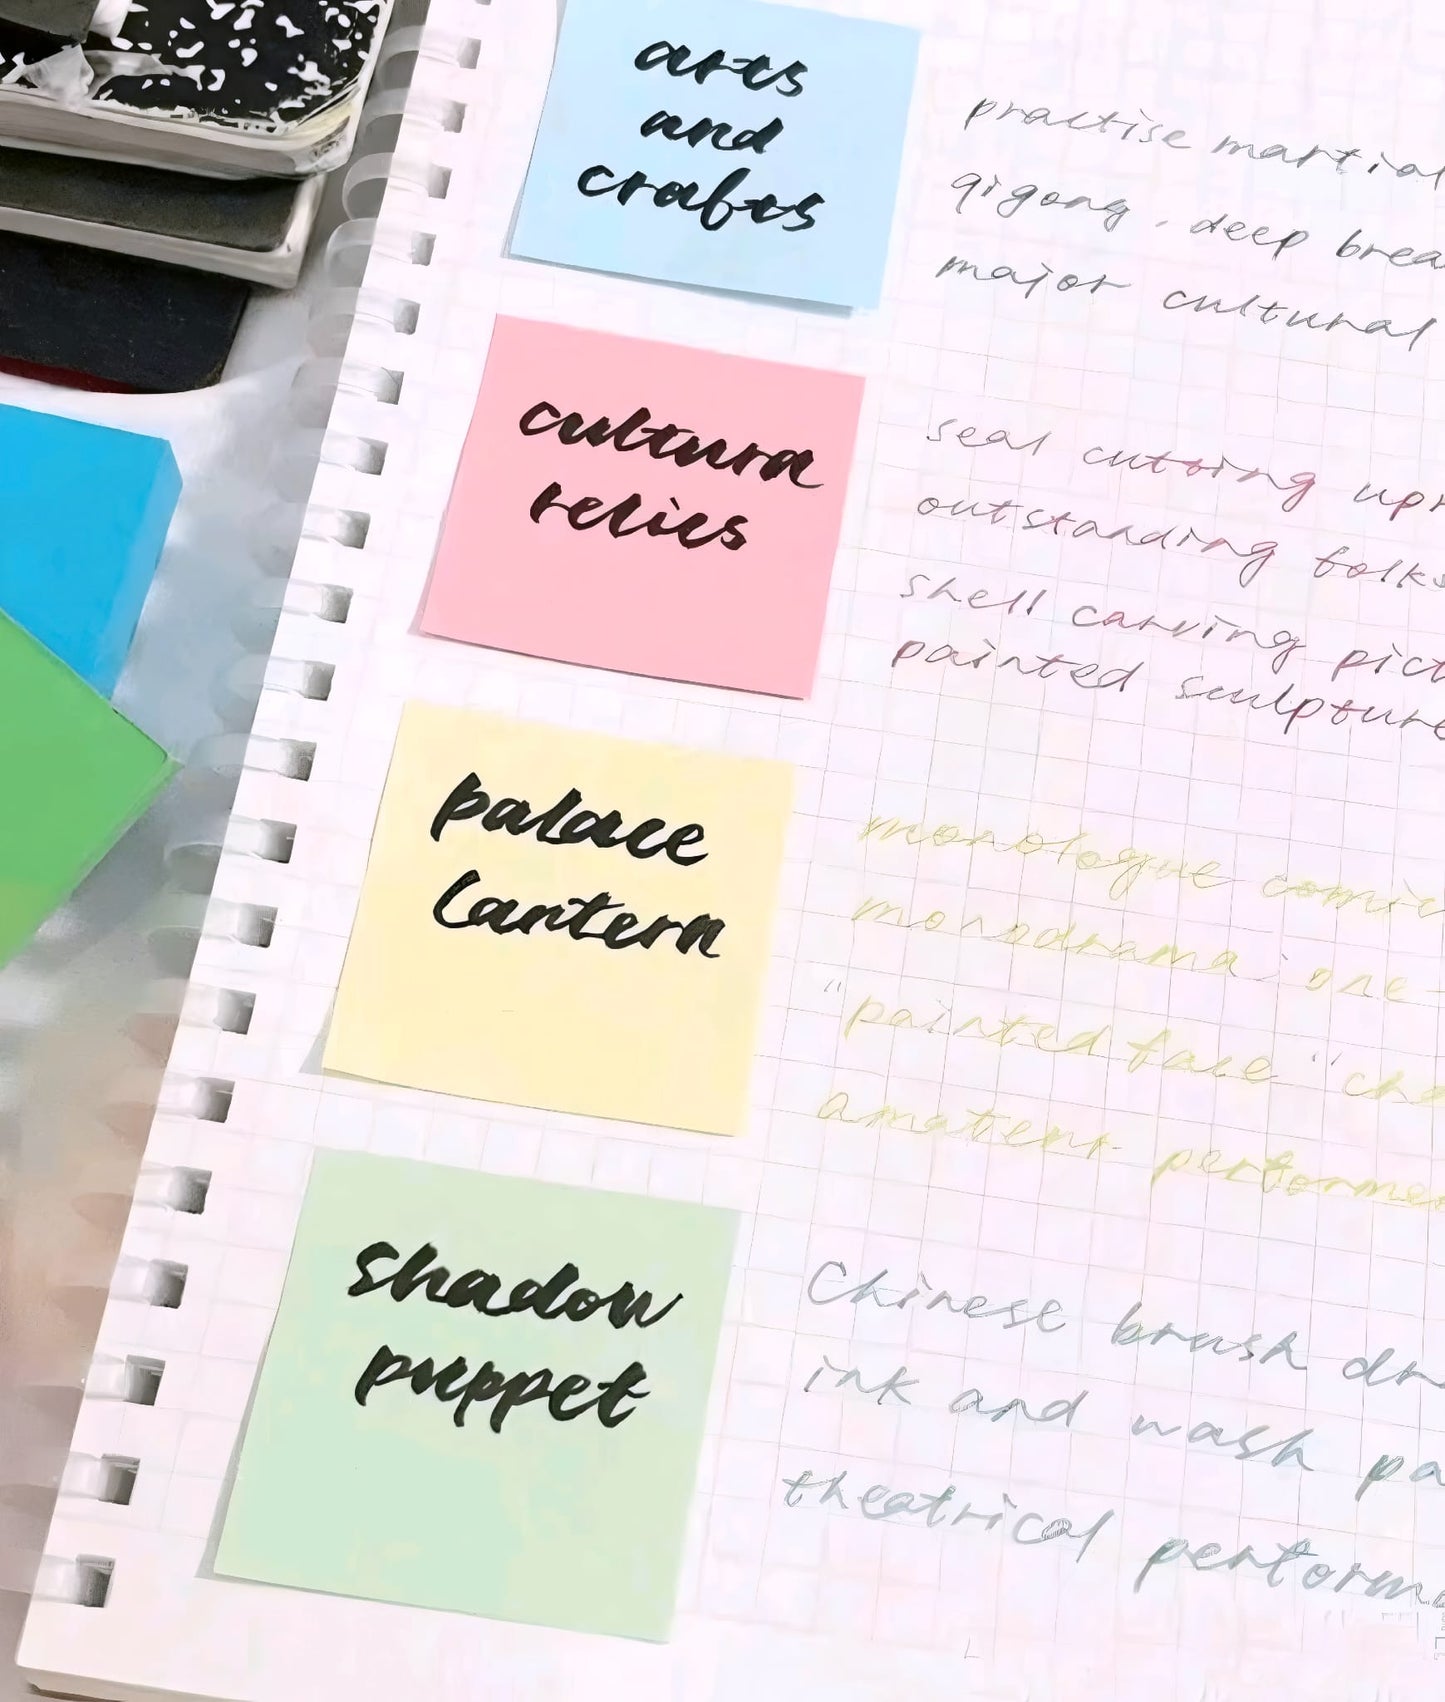 arts
and
crafts
practise martial
qigong . deep brea
major cultural
cultura
relics
seal cutting upr
outstanding folks
shell carving pict
painted sculpture
palace
lantern
monologue comic
monodrama: one-
"painted face" cha
amateur performe
shadow
puppet
Chinese brush dr
ink and wash pa
theatrical perform